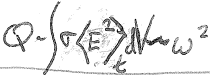 Q ~ ∫ σ⟨E²⟩_t dV ~ ω²